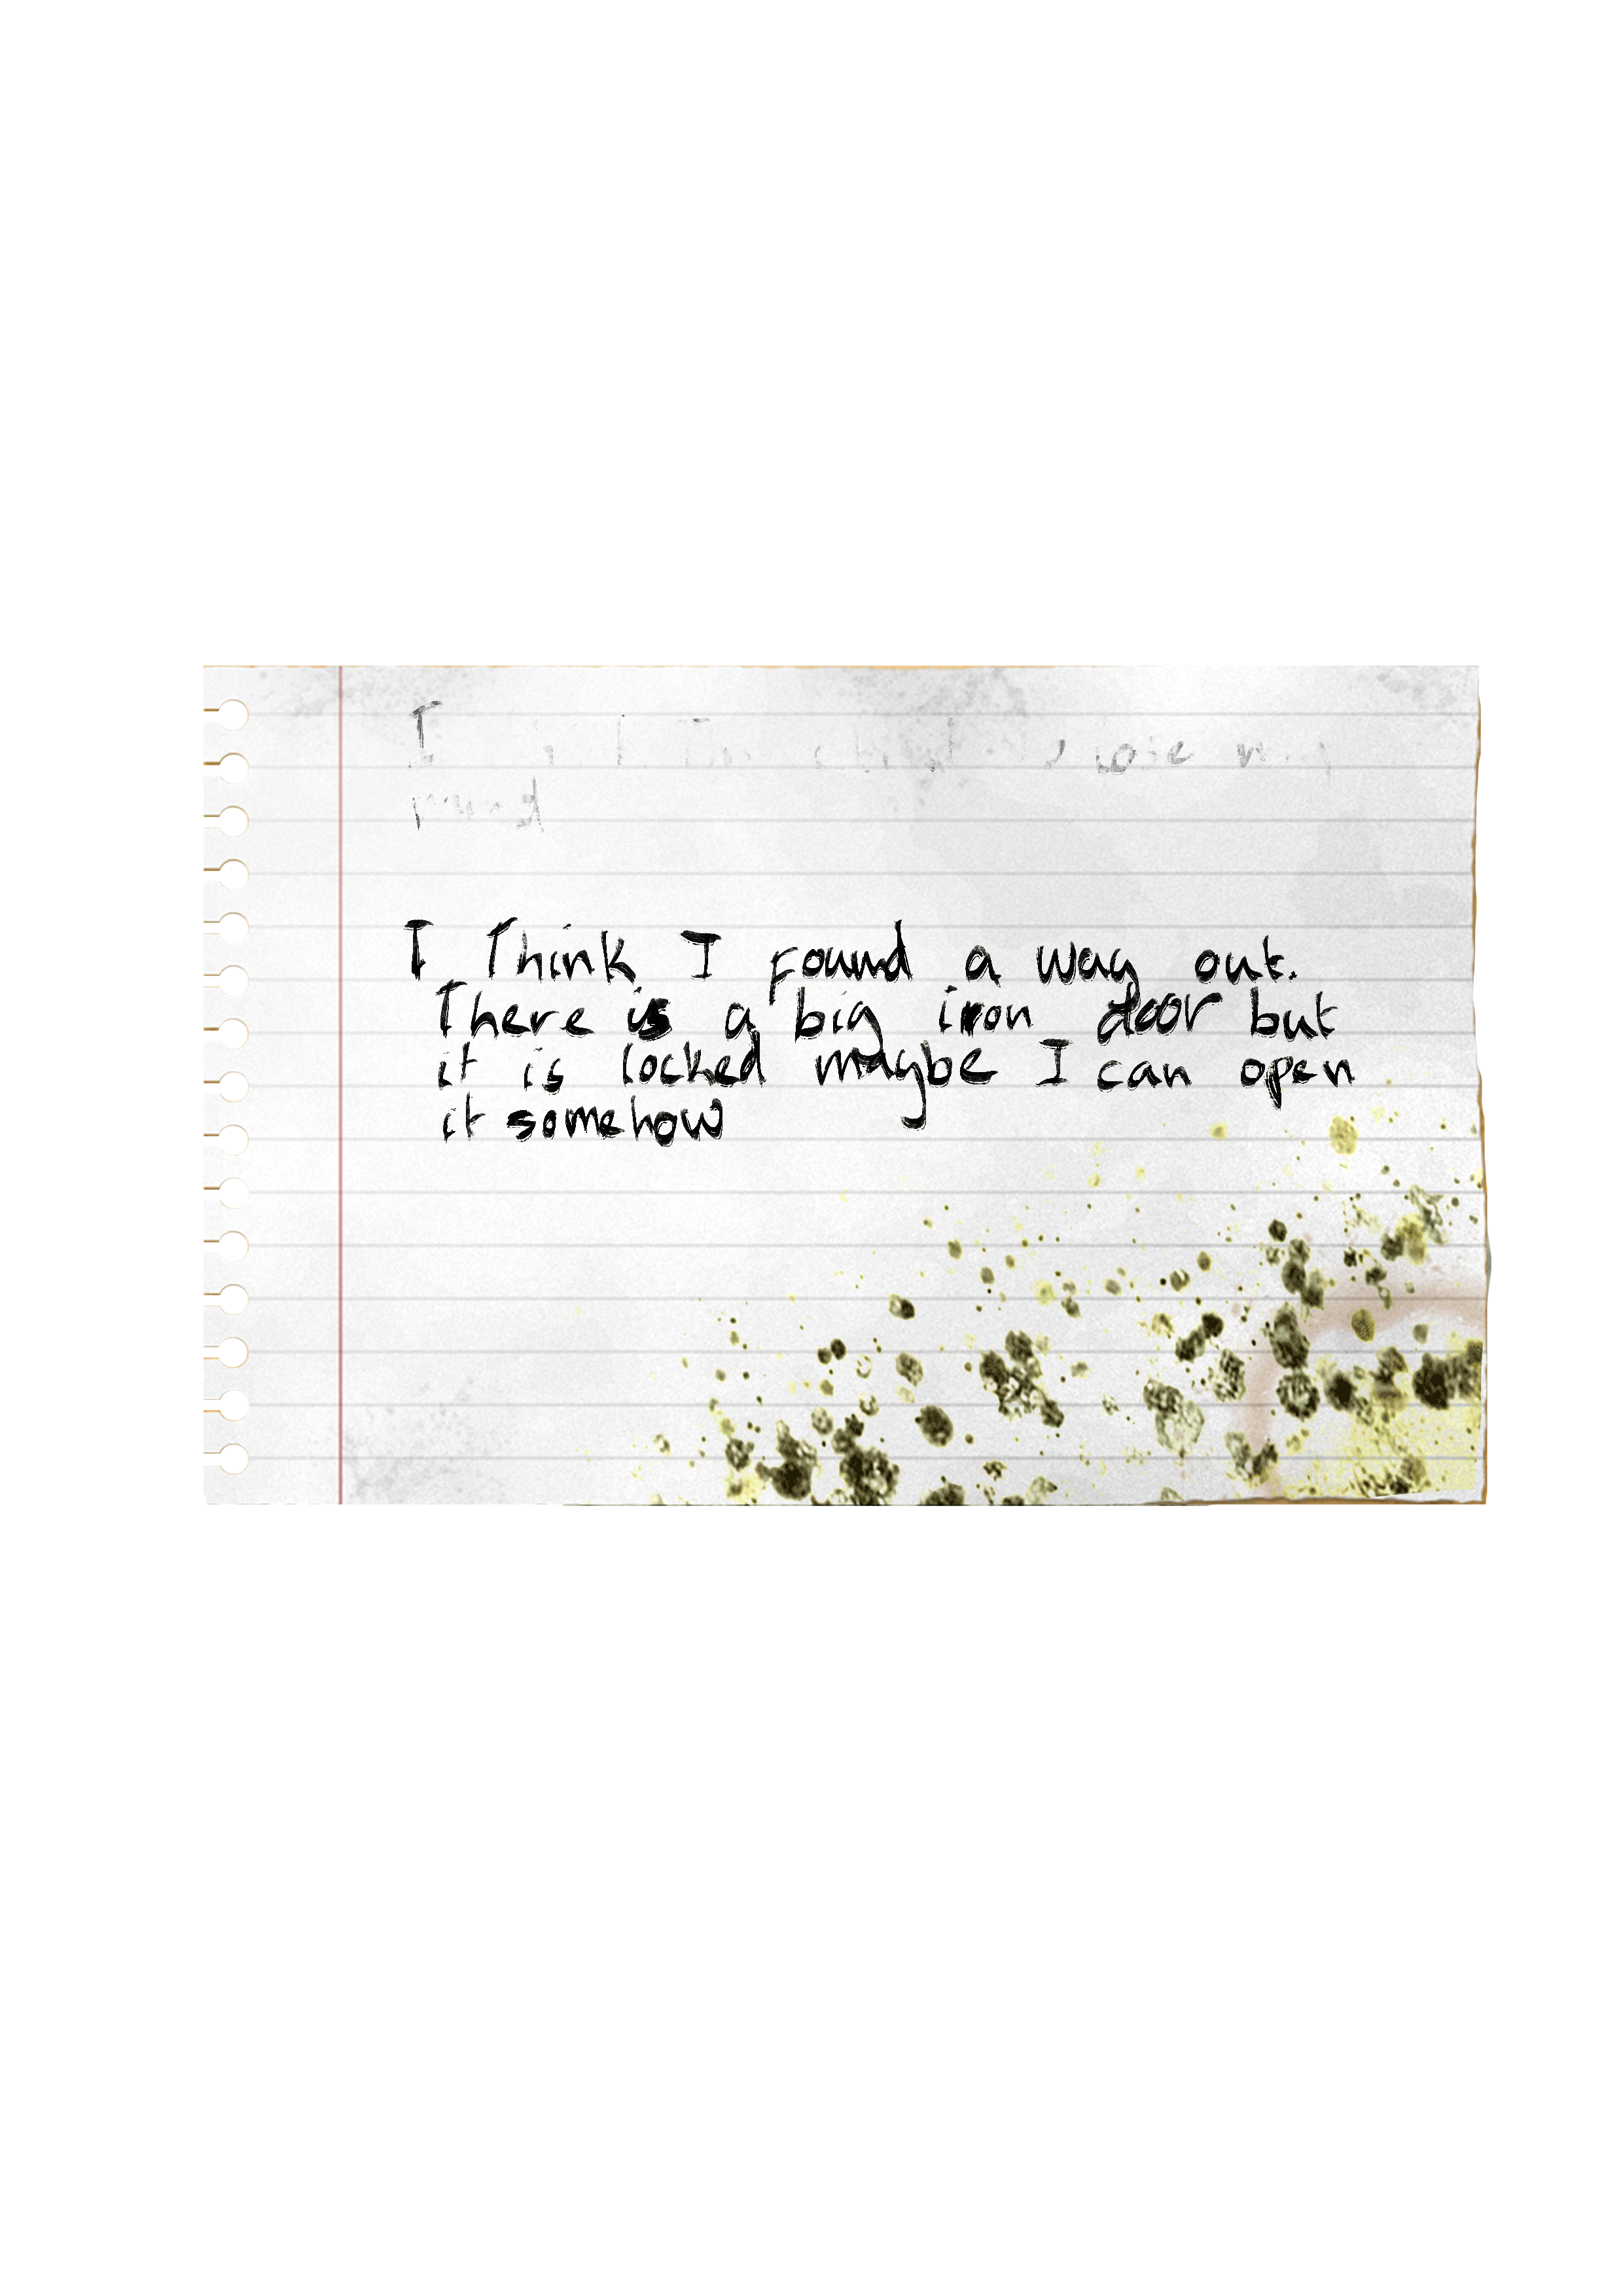 I
lose my
mind
I Think I found a way out.
There is a big iron door but
it is locked maybe I can open
it somehow